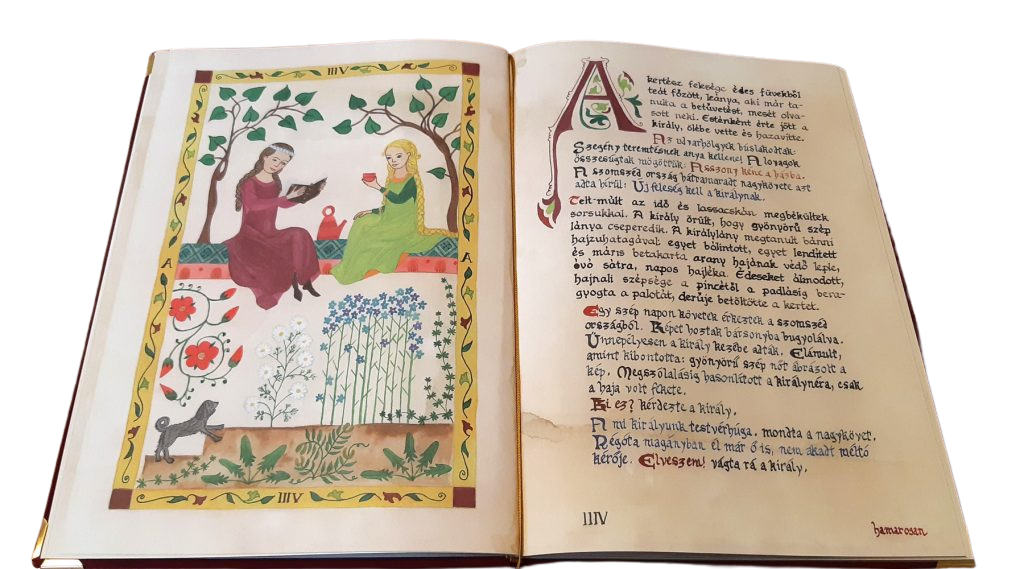 IIIV
A
A
IIIV
A kertész felesége édes füvekből
teát főzött, leánya, aki már ta-
nulta a betűvetést, mesét olva-
sott neki. Esténként érte jött a
király, ölébe vette és hazavitte.
Az udvarhölgyek búslakodtak:
Szegény teremtésnek anya kellene! A lovagok
összesúgtak mögöttük: Asszony kéne a házba.
A szomszéd ország hátramaradt nagykövete azt
adta hírül: Új feleség kell a királynak.
Telt-múlt az idő és lassacskán megbékültek
sorsukkal. A király örült, hogy gyönyörű szép
lánya cseperedik. A királylány megtanult bánni
hajzuhatagával: egyet bólintott, egyet lendített
és máris betakarta arany hajának védő leple,
óvó sátra, napos hajléka. Édeseket álmodott,
hajnali szépsége a pincétől a padlásig bera-
gyogta a palotát, derűje betöltötte a kertet.
Egy szép napon követek érkeztek a szomszéd
országból. Képet hoztak bársonyba bugyolálva.
Ünnepélyesen a király kezébe adták. Elámult,
amint kibontotta: gyönyörű szép nőt ábrázolt a
kép. Megszólalásig hasonlított a királynéra, csak
a haja volt fekete.
Ki ez? kérdezte a király.
A mi királyunk testvérhúga, mondta a nagykövet.
Régóta magányban él már ő is, nem akadt méltó
kérője. Elveszem! vágta rá a király.
IIIV
hamarosan